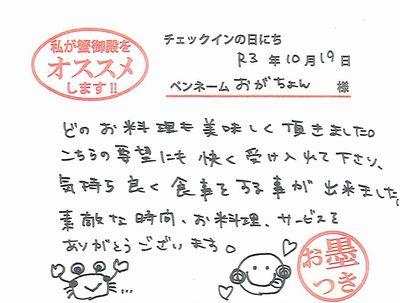 私が蟹御殿を
オススメ
します!!
チェックインの日にち
R3 年 10 月 19 日
ペンネーム おがちょん 様
どのお料理も美味しく頂きました。
こちらの要望にも快く受け入れて下さり、
気持ち良く食事をする事が出来ました。
素敵な時間、お料理、サービスを
ありがとうございます。
お墨
つき